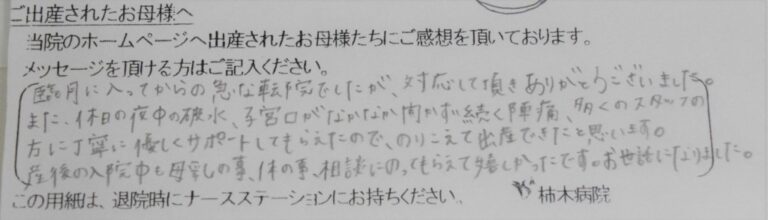 ご出産されたお母様へ
当院のホームページへ出産されたお母様たちにご感想を頂いております。
メッセージを頂ける方はご記入ください。
臨月に入ってからの急な転院でしたが、対応して頂きありがとうございました。
また、休日の夜中の破水、子宮口がなかなか開かず続く陣痛、多くのスタッフの
方に丁寧に優しくサポートしてもらえたので、のりこえて出産できたと思います。
産後の入院中も母乳の事、体の事、相談にのってもらえて嬉しかったです。お世話になりました。
この用紙は、退院時にナースステーションにお持ちください。 柿木病院